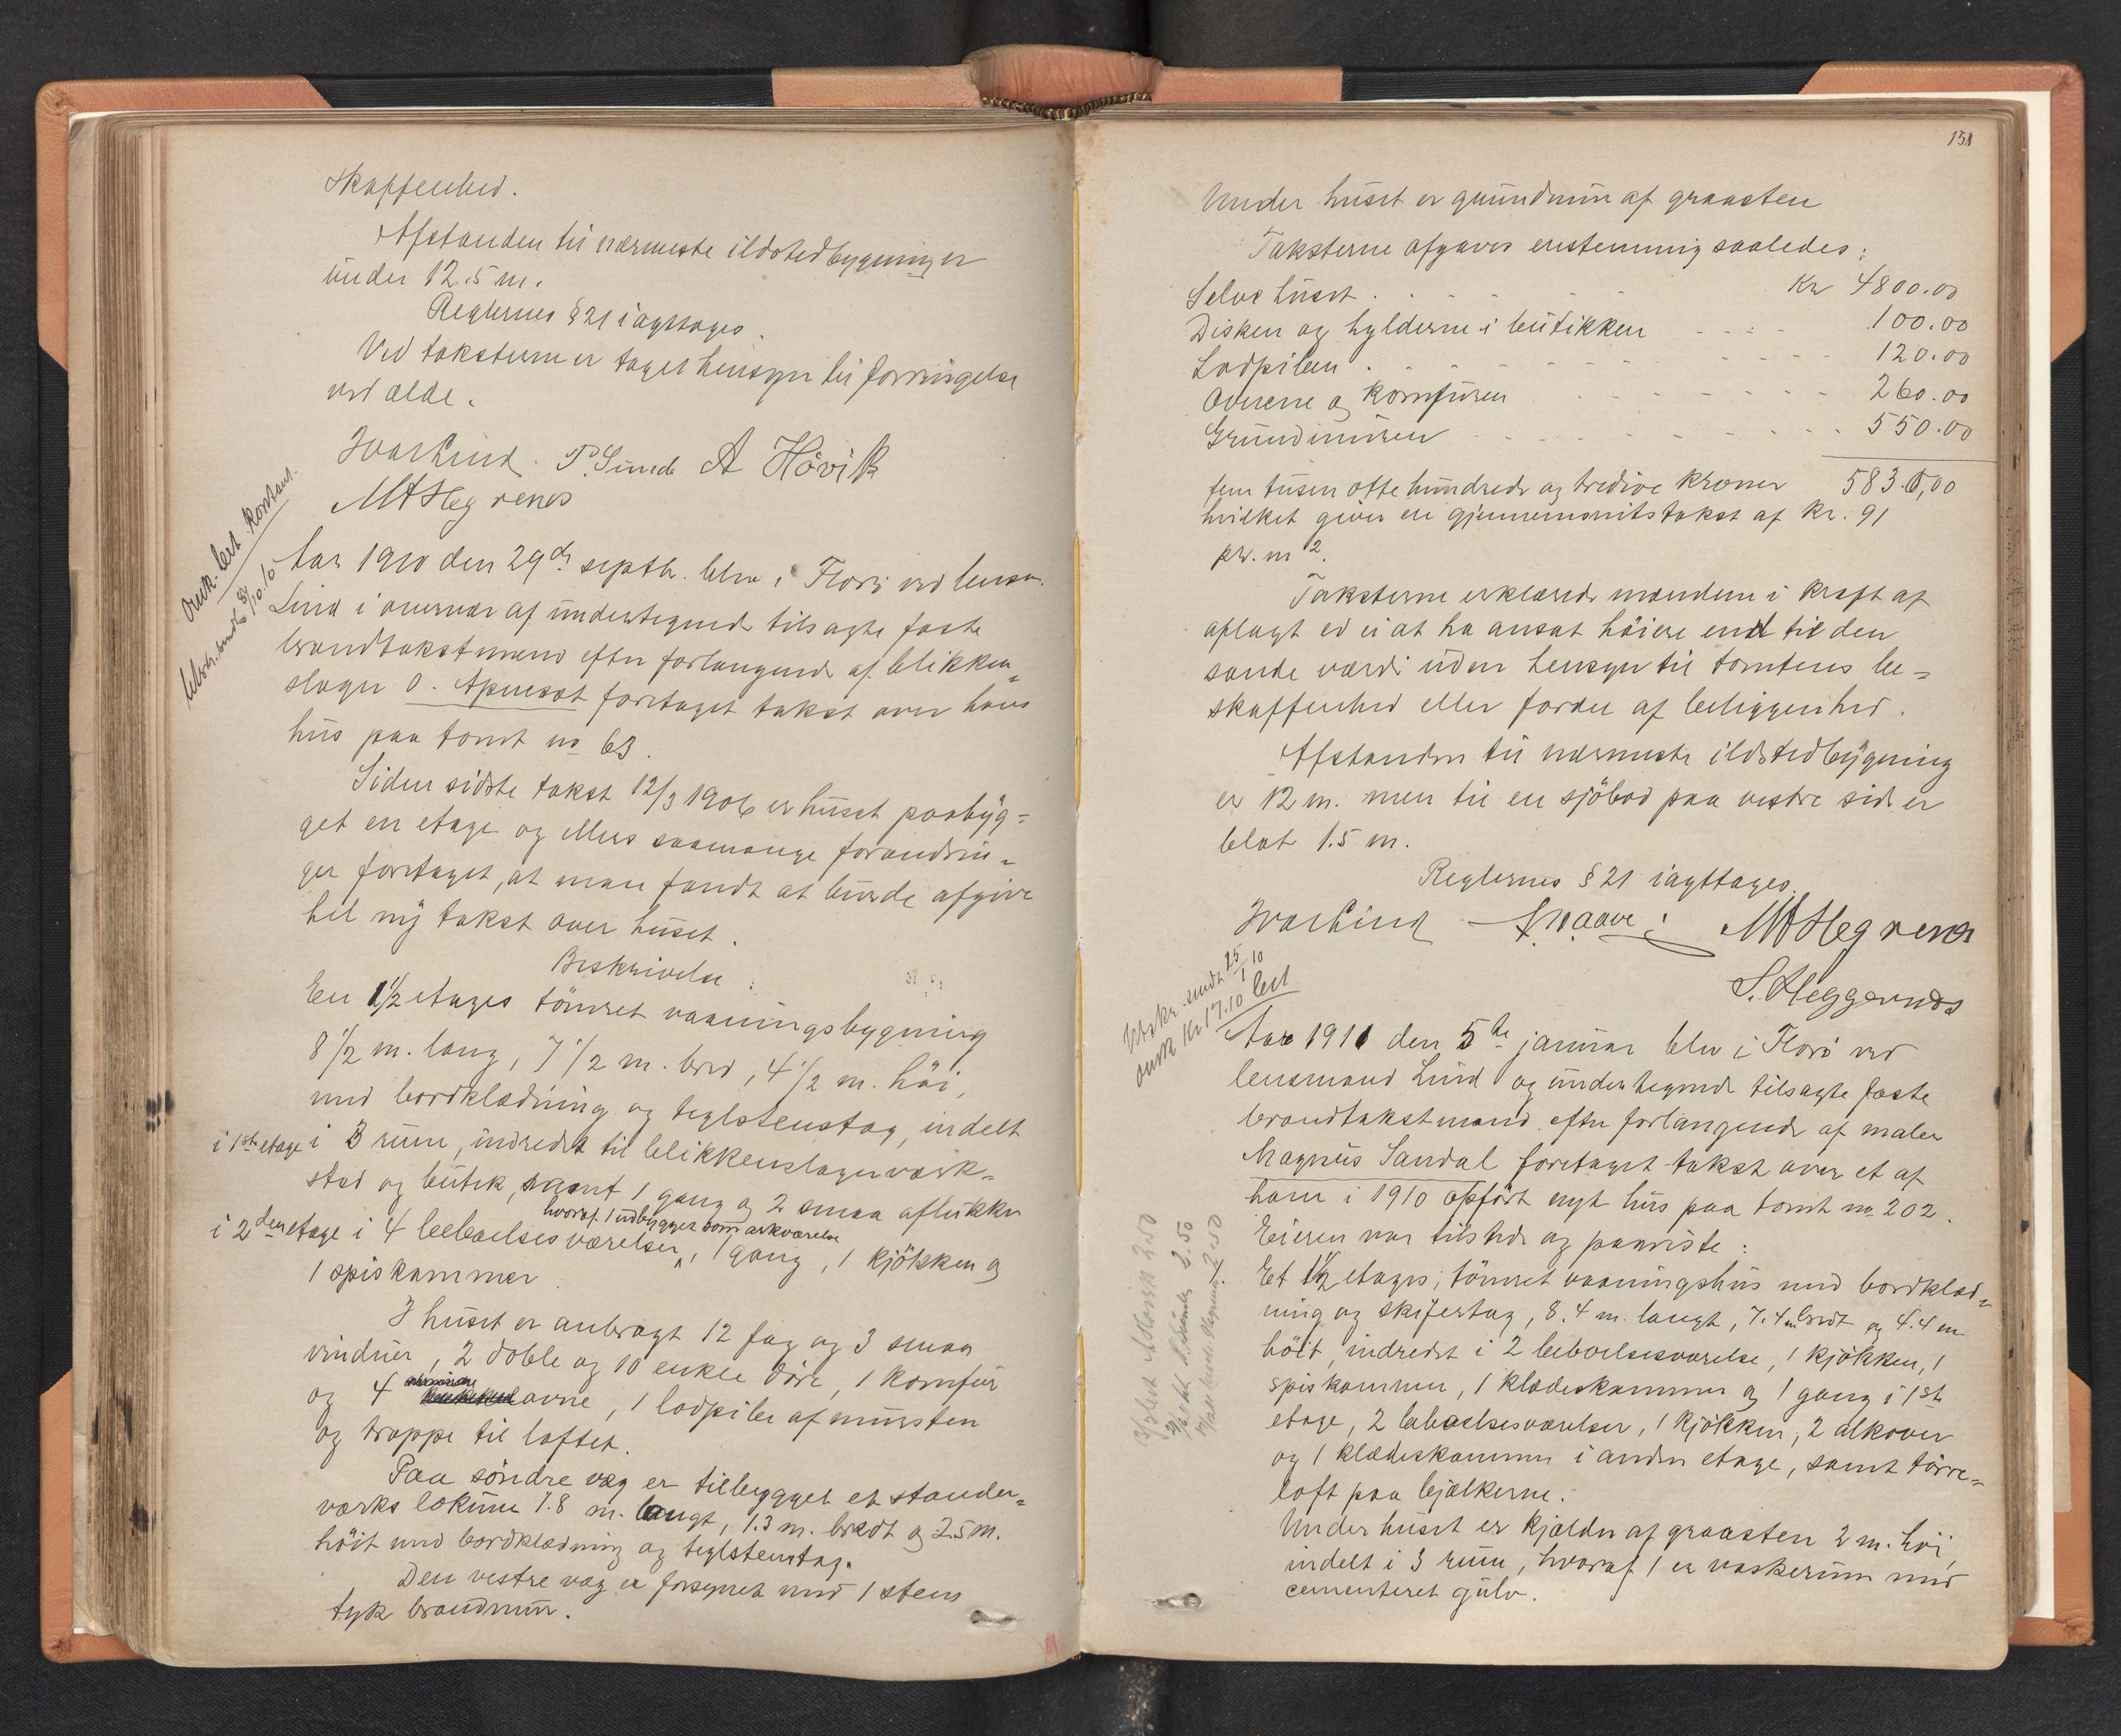 skaffenhed.
Afstanden til nærmeste ildstedbygninger
under 12.5 m.
Reglernes § 21 iagttages.
Ved taksterne er taget hensyn til forringelse
ved ælde.
Ivar Lind. P. Sunde A Hövik
M A Hegrenes
Omk. bet. kontant.
Utskr. sendt 8/10.10
Aar 1910 den 29de septbr. blev i Florö ved lensm.
Lind i overvær af undertegnede tilsagte faste
brandtakstmænd efter forlangende af blikken-
slager O. Apnesæt foretaget takst over hans
hus paa tomt no 63.
Siden sidste takst 12/3 1906 er huset paabyg-
get en etage og ellers saamange forandrin-
ger foretaget, at man fandt at burde afgive
hel ny takst over huset.
Beskrivelse:
En 1 1/2 etages tömret vaaningsbygning
8 1/2 m. lang, 7 1/2 m. bred, 4 1/2 m. höi,
med bordklædning og teglstenstag, indelt
i 1ste etage i 3 rum, indredet til blikkenslagerværk-
sted og butik, samt 1 gang og 2 smaa aflukker
hvoraf 1 udbygget som arkværelse
i 2den etage i 4 beboelsesværelser, 1 gang, 1 kjökken og
1 spiskammer
I huset er anbragt 12 fag og 3 smaa
vinduer, 2 doble og 10 enkle döre, 1 komfur
og 4 ovne, 1 lodpibe af mursten
og trappe til loftet.
Paa söndre væg er tilbygget et stander-
værks lokum 1.8 m. langt, 1.3 m. bredt og 2.5 m.
höit med bordklædning og teglstenstag.
Den vestre væg er forsynet med 1 stens
tyk brandmur.
151
Under huset er grundmur af graasten
Taksterne afgaves enstemmig saaledes:
Selve huset . . . . Kr 4800.00
Disken og hylderne i butikken - - - - 100.00
Lodpiben . - - - - 120.00
Ovnene og komfuren - - - - 260.00
Grundmuren - - - - 550.00
fem tusen otte hundrede og tredive kroner 5830,00
hvilket giver en gjennemsnitstakst af kr. 91
pr. m2.
Taksterne erklærede mændene i kraft af
aflagt ed ei at ha ansat höiere end til den
sande værdi uden hensyn til tomtens be-
skaffenhed eller fordel af beliggenhed.
Afstanden til nærmeste ildstedbygning
er 12 m. men til en sjöbod paa vestre side er
blot 1.5 m.
Reglernes § 21 iagttages.
Ivar Lind M A Hegrenes
S. Heggernæs
Utskr. sendt 25/1 10
omk Kr 17.10 bet
Aar 1911 den 5te januar blev i Florö ved
lensmand Lind og undertegnede tilsagte faste
brandtakstmænd efter forlangende af maler
Magnus Sandal foretaget takst over et af
ham i 1910 opfört nyt hus paa tomt no 202.
Eieren var tilstede og paaviste:
1. Et 1 1/2 etages, tömret vaaningshus med bordklæd-
ning og skifertag, 8.4 m. langt, 7.4 m bredt og 4.4 m
höit, indredet i 2 beboelsesværelse, 1 kjökken, 1
spiskammer, 1 klædeskammer og 1 gang i 1ste
etage, 2 beboelsesværelser, 1 kjökken, 2 alkover
og 1 klædeskammer i anden etage, samt törre-
loft paa bjælkerne.
Under huset er kjælder af graasten 2 m. höi,
indelt i 3 rum, hvoraf 1 er vaskerum med
cementeret gulv.